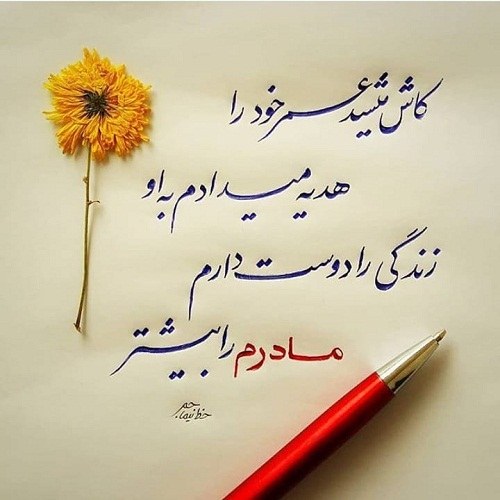 کاش میشد عمر خود را
هدیه میدادم به او
زندگی را دوست دارم
مادرم را بیشتر